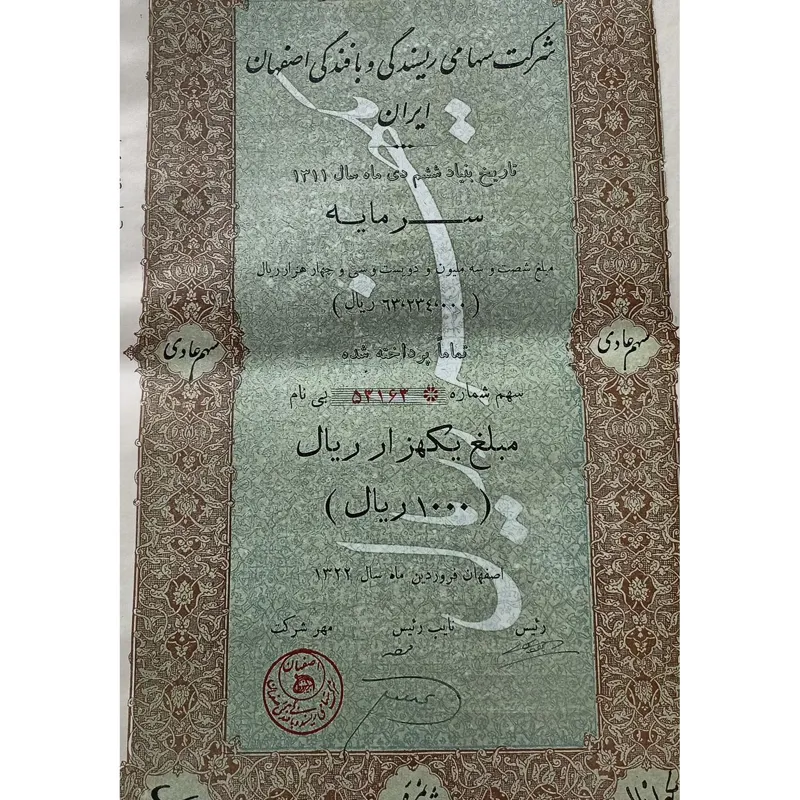 شرکت سهامی ریسندگی و بافندگی اصفهان
ایران
تاریخ بنیاد ششم دی ماه سال ۱۳۱۱
سرمایه
مبلغ شصت و سه ملیون و دویست و سی و چهار هزار ریال
(۶۳٬۲۳۴٬۰۰۰ ریال)
تماماً پرداخته شده
سهم عادی
سهم عادی
سهم شماره ۵۳۱۶۳ بی نام
مبلغ یکهزار ریال
(۱۰۰۰ ریال)
اصفهان فروردین ماه سال ۱۳۲۲
رئیس نایب رئیس مهر شرکت
اصفهان